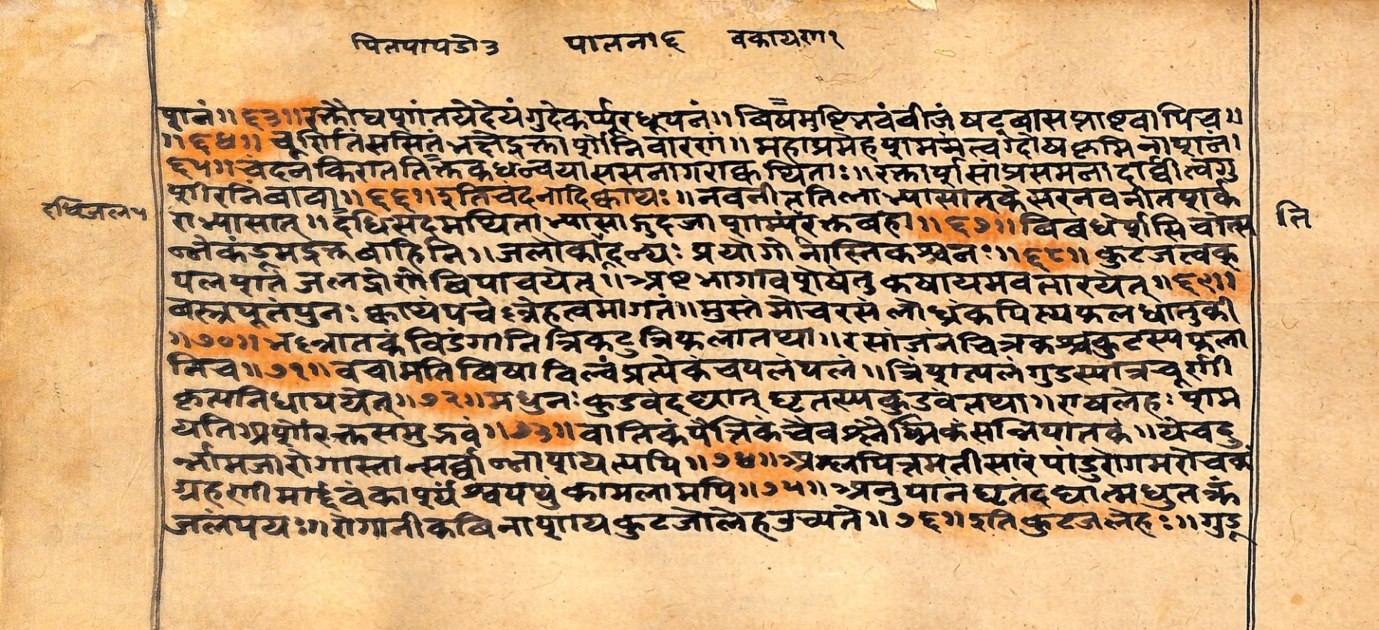 पितपापडो३ पालना६ वकायण१
शनं॥६३॥रक्तौघशांतयेदेयंगुदेकर्प्पूरधूपनं॥विषमुष्टिभवंबीजं षदवासम्नाश्वापिच॥
॥६४॥ चूर्णितंससितं भक्षेद्रक्तार्शोनिवारणं॥महाप्रमेहशमनं त्वग्दोषकृमिनाशनं॥
६५॥चंदनकिराततिक्तकधन्वयासासनागराक्वथिताः॥रक्तार्शसांप्रसमनादार्व्वीत्वगु
शीरनिंबावा॥६६॥इतिचंदनादिक्वाथः॥नवनीततिलाभ्यासात्केसरनवनीतशर्क
राभ्यासात्॥दधिसदमथिताभ्यासाद्गुदजाशाम्यंरक्तवहा॥६७॥विबधर्शसिचोत्स
न्नेकंडूमद्रक्तवाहिनि॥जलौकादन्यः प्रयोगोनास्तिकश्चनः॥६८॥ कुटजत्वक्
पलशतं जलद्रोणेविपाचयेत्॥अष्टभागावशेषंतु कषायमवतारयेत्॥६९॥
वस्त्रपूतंपुनः क्वाथंपचेल्लेहत्वमागतं॥मुस्तंमोचरसंलोध्रंकपित्थफलधातुकी
॥७०॥भल्लातकंविडंगानित्रिकटुत्रिफलातथा॥रसांजनंचित्रकश्चकुटस्यफला
निच॥७१॥वचामतिविषाबिल्वंप्रत्येकंचपलंपलं॥त्रिंशत्पलंगुडस्यात्रचूर्णी
कृत्यनिधापयेत्॥७२॥मधुनः कुडवंदद्यात् घृतस्यकुडवंतथा॥एषलेहः शम
यतिअर्शोरक्तसमुद्भवं॥७३॥वातिकंपैत्तिकंचैवश्लैष्मिकंसन्निपातकं॥येचदु
र्न्नामजारोगास्तान्सर्व्वान्नाशयत्यपि॥७४॥अम्लपित्तमतीसारं पांडुरोगमरोचकं
ग्रहणीमार्द्दवंकार्श्यंश्वयथुंकामलामपि॥७५॥अनुपानंघृतंदद्यात्मधुतक्रं
जलंपयः॥रोगानीकविनाशायकुटजोलेहउच्यते॥७६॥इतिकुटजलेहः॥गुडू
रुधिजल५
नि